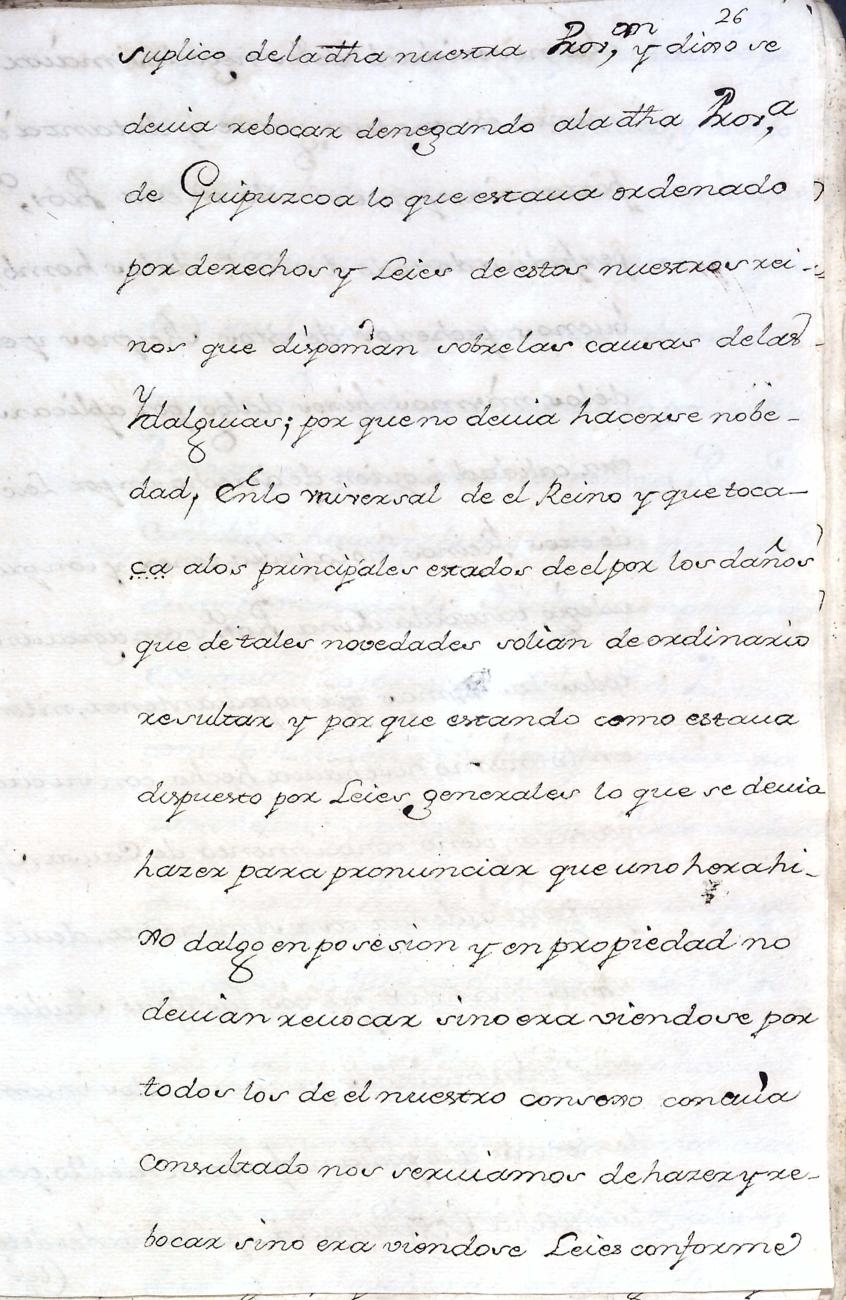 26
suplico de la dha nuestra Prov,on y dixo se
deuia rebocar denegando a la dha Prov,a
de Guipuzcoa lo que estaua ordenado
por derechos y Leies de estos nuestros rei-
nos que disponian sobre las causas de las
Ydalguias; por que no deuia hacerse nobe-
dad, En lo vniversal de el Reino y que toca-
ca a los principales estados de el por los daños
que de tales novedades solian de ordinario
resultar y por que estando como estaua
dispuesto por Leies generales lo que se deuia
hazer para pronunciar que uno hera hi-
xo dalgo en posesion y en propiedad no
deuian reuocar sino era viendose por
todos los de el nuestro consexo con cuia
consultado nos seruiamos de hazer y re-
bocar sino era viendose Leies conforme